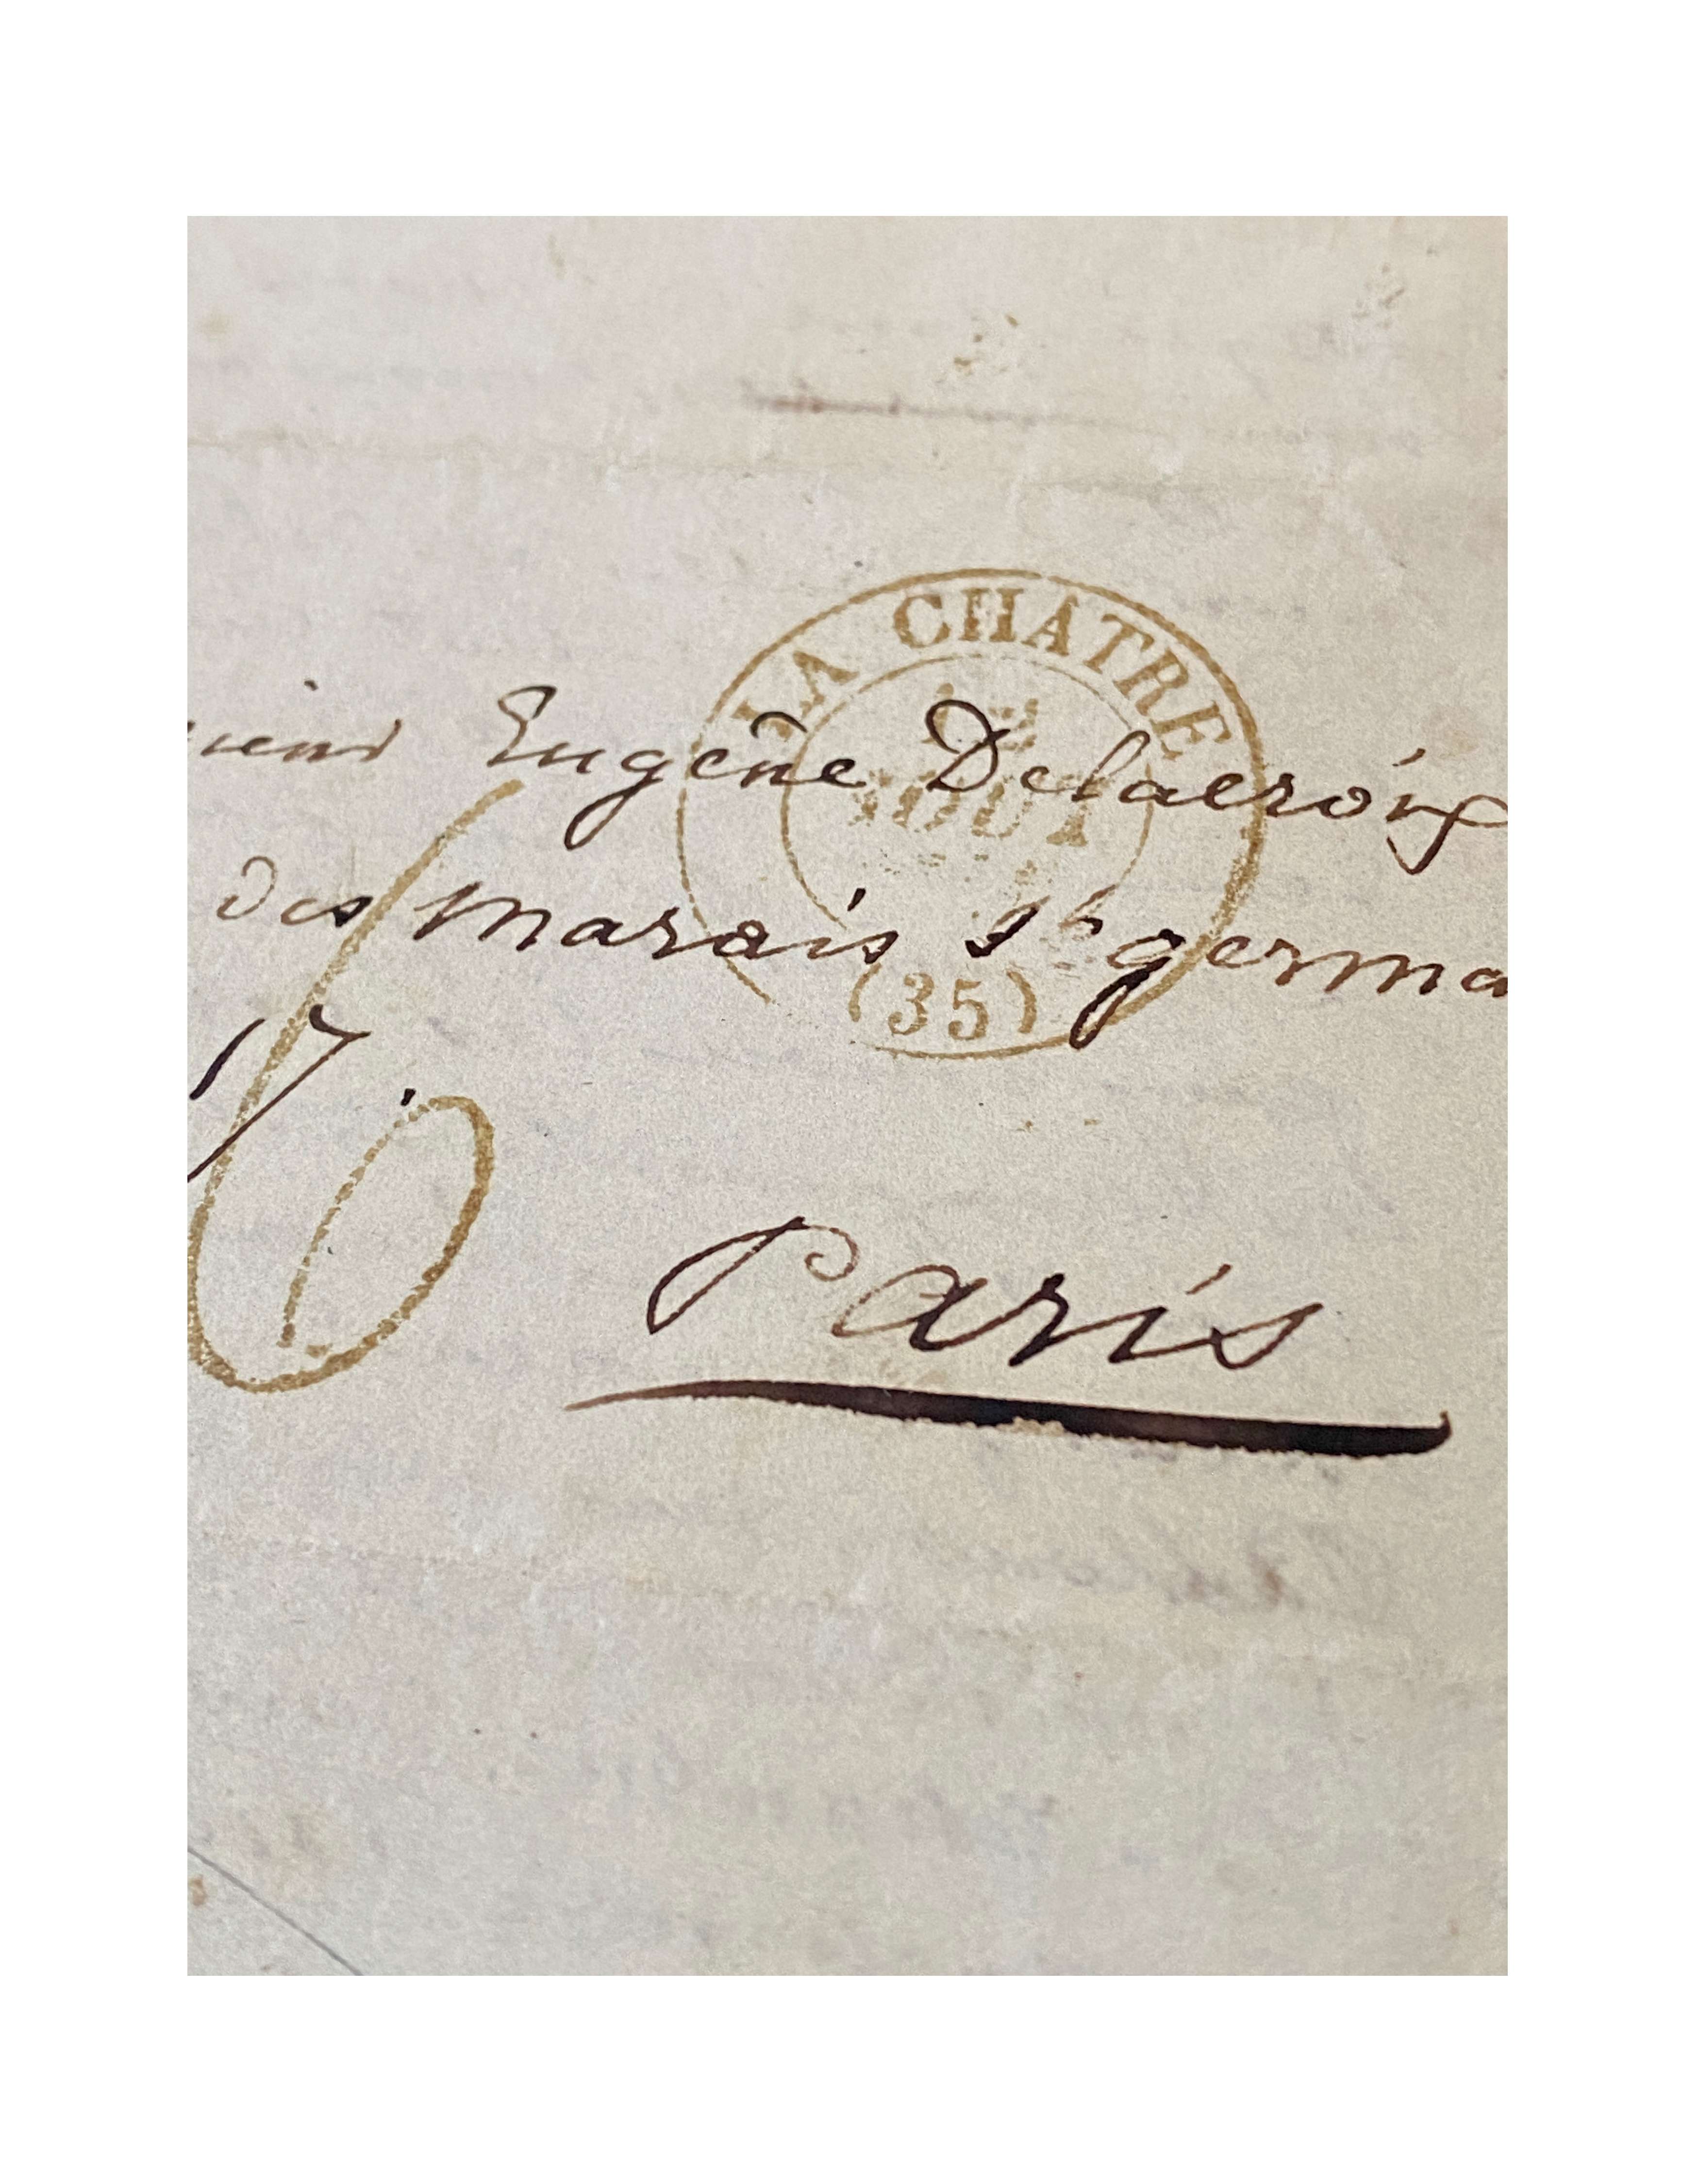 LA CHATRE
AOUT
(35)
Eugène Delacroix
des Marais St germa
17.
6
Paris